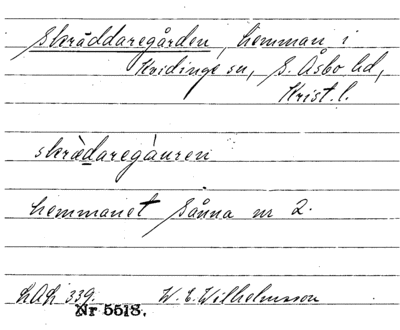 Skräddaregården, hemman i
Kvidinge sn, S. Åsbo hd,
Krist. l.
skrädaregåuren
hemmanet Sånna nr 2.
LAL 339. W. E. Wilhelmsson
Nr 5518.